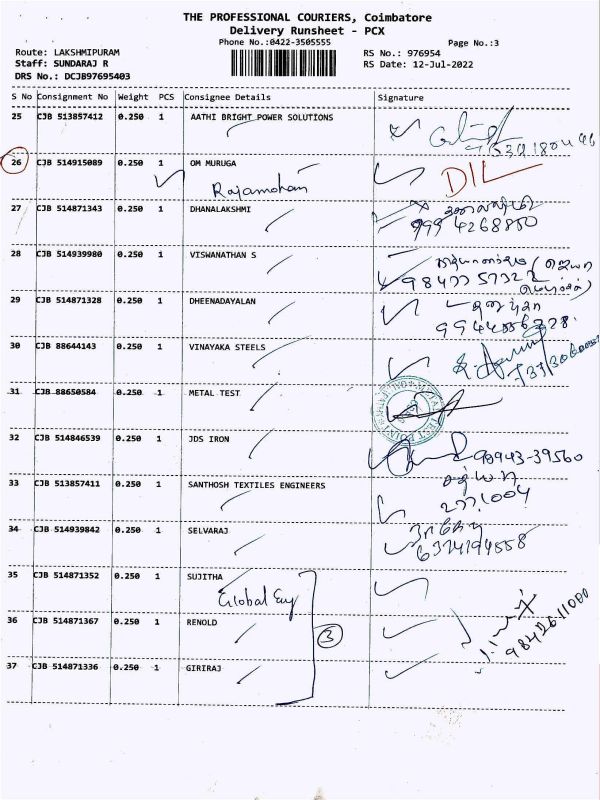 THE PROFESSIONAL COURIERS, Coimbatore
Delivery Runsheet - PCX
Phone No.:0422-3505555
Page No.:3
Route: LAKSHMIPURAM
RS No.: 976954
Staff: SUNDARAJ R
RS Date: 12-Jul-2022
DRS No.: DCJB97695403
S No Consignment No Weight PCS Consignee Details Signature
25 CJB 513857412 0.250 1 AATHI BRIGHT POWER SOLUTIONS
26 CJB 514915089 0.250 1 OM MURUGA DIL
Rajamohan
27 CJB 514871343 0.250 1 DHANALAKSHMI
9994268850
28 CJB 514939980 0.250 1 VISWANATHAN S
29 CJB 514871328 0.250 1 DHEENADAYALAN
30 CJB 88644143 0.250 1 VINAYAKA STEELS
31 CJB 88650584 0.250 1 METAL TEST
32 CJB 514846539 0.250 1 JDS IRON
90943-39560
33 CJB 513857411 0.250 1 SANTHOSH TEXTILES ENGINEERS
34 CJB 514939842 0.250 1 SELVARAJ
6374194558
35 CJB 514871352 0.250 1 SUJITHA
Global
36 CJB 514871367 0.250 1 RENOLD
3
9842611000
37 CJB 514871336 0.250 1 GIRIRAJ